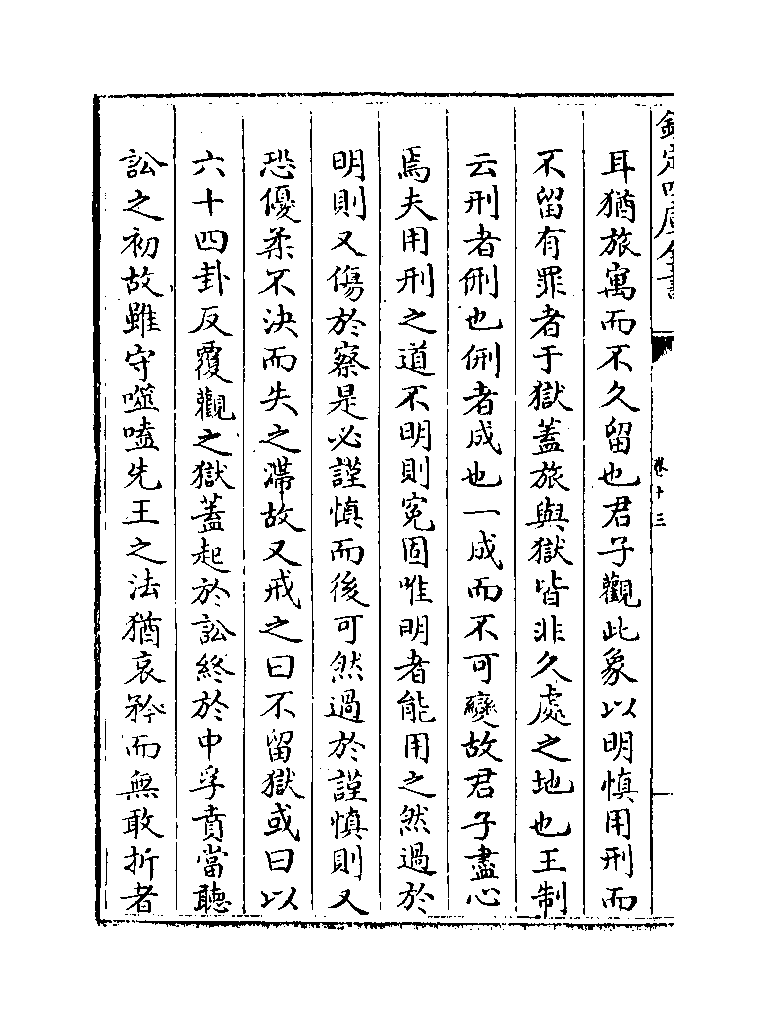 欽定四庫全書
卷十三
耳猶旅寓而不久留也君子觀此象以明慎用刑而
不留有罪者于獄蓋旅與獄皆非久處之地也王制
云刑者侀也侀者成也一成而不可變故君子盡心
焉夫用刑之道不明則寃固唯明者能用之然過於
明則又傷於察是必謹慎而後可然過於謹慎則又
恐優柔不決而失之滯故又戒之曰不留獄或曰以
六十四卦反覆觀之獄蓋起於訟終於中孚賁當聽
訟之初故雖守噬嗑先王之法猶哀矜而無敢折者